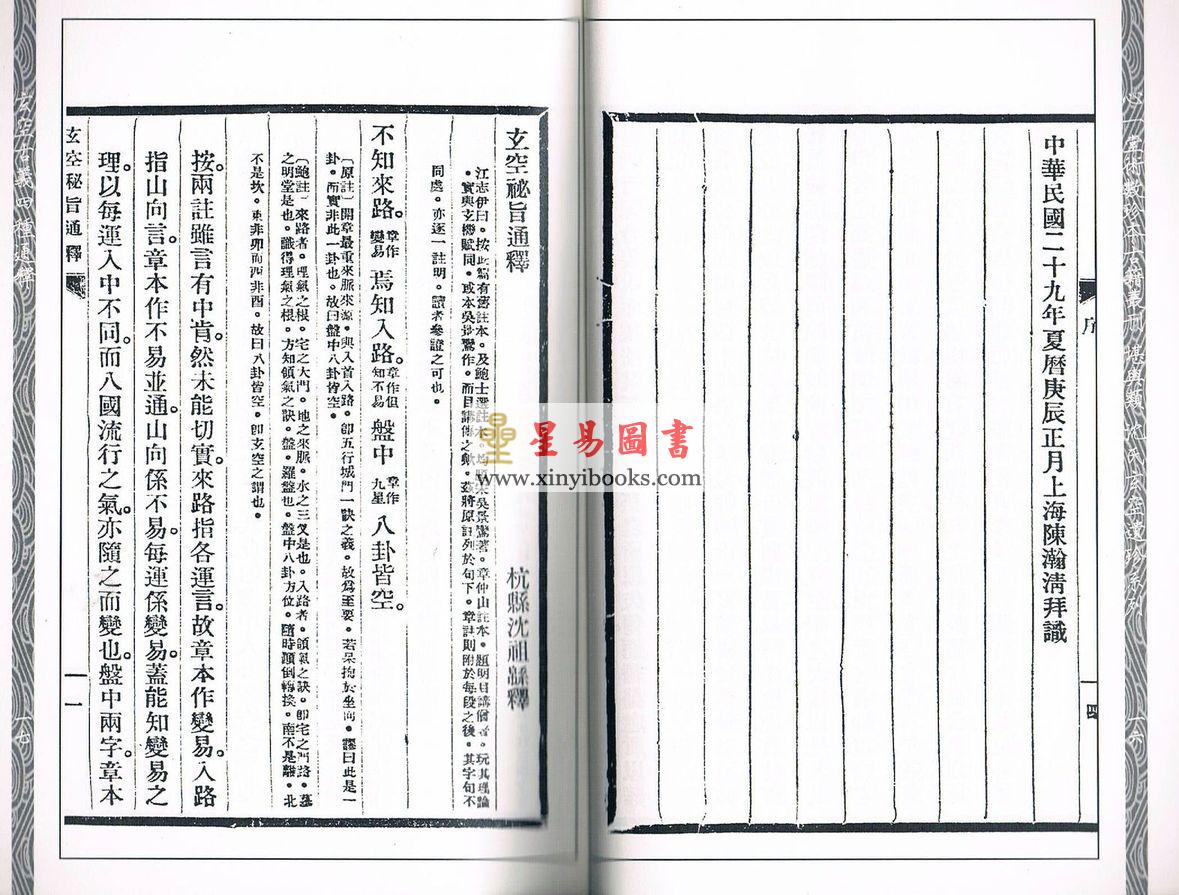 中華民國二十九年夏曆庚辰正月上海陳瀚清拜識
序
一四
玄空秘旨通釋
杭縣沈祖緜釋
江志伊曰。按此篇有舊註本。及鮑士選註本。均題宋吳景鸞著。章仲山註本。題明目講僧者。玩其理論
。實與玄機賦同。或本吳景鸞作。而目講傳之歟。茲將原註列於句下。章註則附於每段之後。其字句不
同處。亦逐一註明。讀者參證之可也。
不知來路。章作變易焉知入路。章作但知不易盤中章作九星八卦皆空。
〔原註〕開章最重來脈來源。與入首入路。卽五行城門一訣之義。故爲至要。若呆拘於坐向。謬曰此是一
卦。而實非此一卦也。故曰盤中八卦皆空。
〔鮑註〕來路者。理氣之根。宅之大門。地之來脈。水之三叉是也。入路者。領氣之訣。卽宅之門路。墓
之明堂是也。識得理氣之根。方知領氣之訣。盤。羅盤也。盤中八卦方位。隨時顚倒轉換。南不是離。北
不是坎。東非卯而西非酉。故曰八卦皆空。卽玄空之謂也。
按。兩註雖言有中肯。然未能切實。來路指各運言。故章本作變易。入路
指山向言。章本作不易並通。山向係不易。每運係變易。蓋能知變易之
理。以每運入中不同。而八國流行之氣。亦隨之而變也。盤中兩字。章本
玄空秘旨通釋
一
星易圖書
www.xinyibooks.com